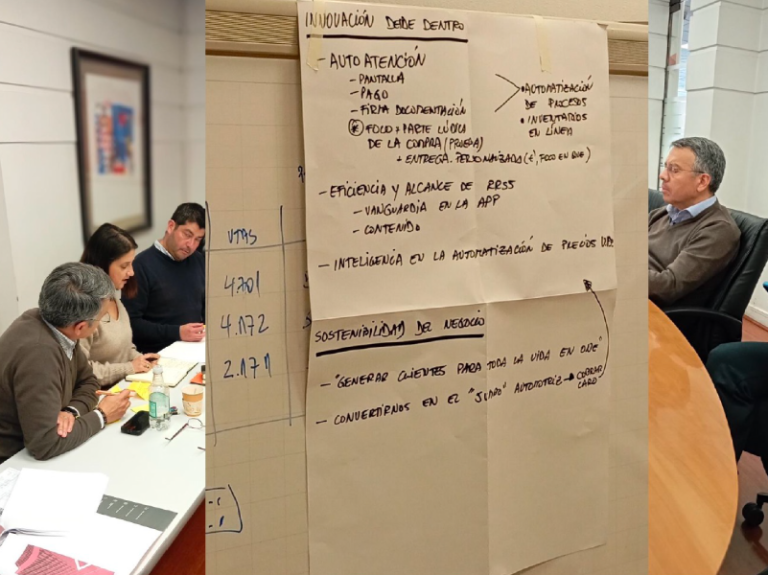 INNOVACIÓN DESDE DENTRO
- AUTO ATENCIÓN
- PANTALLA
- PAGO
- FIRMA DOCUMENTACIÓN
* FOCO + PARTE LÚDICA
DE LA COMPRA (PRUEBA)
+ ENTREGA PERSONALIZADA (
, FOCO EN
)
• AUTOMATIZACIÓN
DE PROCESOS
• INVENTARIOS
EN LÍNEA
- EFICIENCIA Y ALCANCE DE RRSS
- VANGUARDIA EN LA APP
- CONTENIDO
- INTELIGENCIA EN LA AUTOMATIZACIÓN DE PRECIOS
SOSTENIBILIDAD DEL NEGOCIO
- "GENERAR CLIENTES PARA TODA LA VIDA EN
- CONVERTIRNOS EN EL "JUMBO" AUTOMOTRIZ → COBRAR
CARO
VTAS
4.701
4.172
2.171